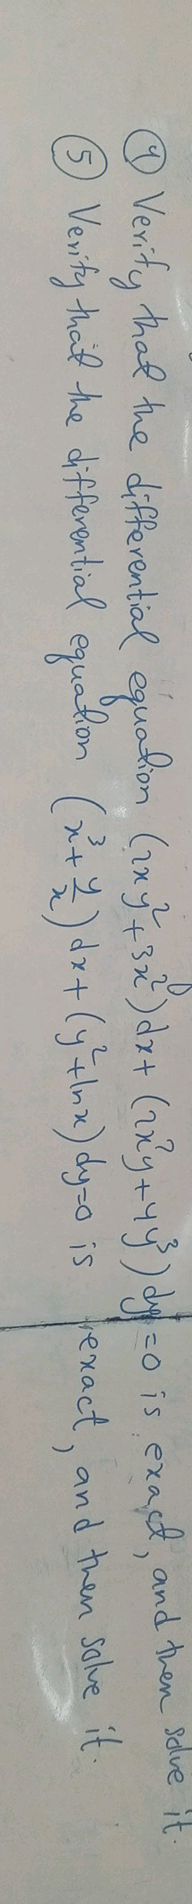 ④ Verify that the differential equation (2xy²+3x²)dx+(2x²y+4y³)dy=0 is exact, and then solve it.
⑤ Verify that the differential equation (x³+y/x)dx+(y²+lnx)dy=0 is exact, and then solve it.